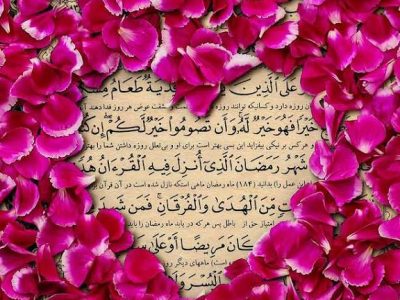 عَلَى الَّذِينَ فِدْيَةٌ طَعَامُ
روزه دارد و کسانیکه توانند روزه و مشقت عوض هر روز فدا دهند
خَيْرًا فَهُوَ خَيْرٌ لَهُ وَأَنْ تَصُومُوا خَيْرٌ لَكُمْ إِنْ
و هر کس بر نیکی بیفزاید این بسی بهتر است برای او و بی‌تعلل روزه داشتن شما را بهتر
شَهْرُ رَمَضَانَ الَّذِي أُنْزِلَ فِيهِ الْقُرْءَانُ
این عمل را) بدانید (۱۸۴) ماه رمضان ماهی استکه نازل شده است در آن قرآن
مِنَ الْهُدَىٰ وَالْفُرْقَانِ فَمَنْ
امتیاز حق از باطل پس هر که دریابد ماه رمضان را باید
كَانَ مَرِيضًا أَوْ عَلَىٰ
است) ماههای دیگر
الْيُسْرَ وَلَا